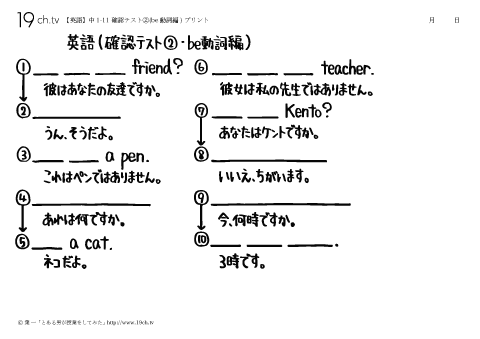 19 ch.tv 【英語】中1-11 確認テスト②(be動詞編) プリント 月 日
英語(確認テスト②・be動詞編)
① ___ ___ ___ friend?
彼はあなたの友達ですか。
② ___
うん、そうだよ。
③ ___ ___ a pen.
これはペンではありません。
④ ___
あれは何ですか。
⑤ ___ a cat.
ネコだよ。
⑥ ___ ___ ___ teacher.
彼女は私の先生ではありません。
⑦ ___ ___ Kento?
あなたはケントですか。
⑧ ___
いいえ、ちがいます。
⑨ ___
今、何時ですか。
⑩ ___ ___ ___.
3時です。
© 葉一「とある男が授業をしてみた」http://www.19ch.tv